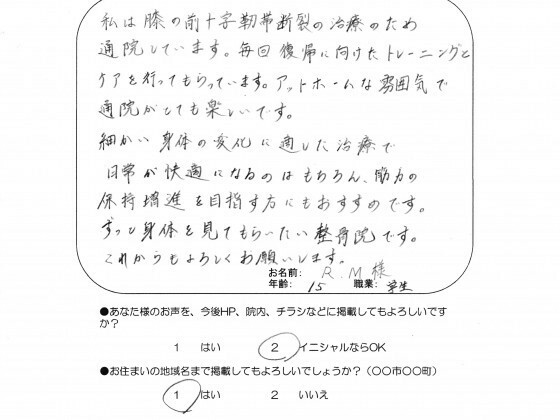 私は膝の前十字靭帯断裂の治療のため
通院しています。毎回復帰に向けたトレーニングと
ケアを行ってもらっています。アットホームな雰囲気で
通院がとても楽しいです。
細かい身体の変化に適した治療で
日常が快適になるのはもちろん、筋力の
保持増進を目指す方にもおすすめです。
ずっと身体を見てもらいたい整骨院です。
これからもよろしくお願いします。
お名前: R.M様
年齢: 15 職業: 学生
●あなた様のお声を、今後HP、院内、チラシなどに掲載してもよろしいです
か?
1 はい 2 イニシャルならOK
●お住まいの地域名まで掲載してもよろしいでしょうか?(〇〇市〇〇町)
1 はい 2 いいえ